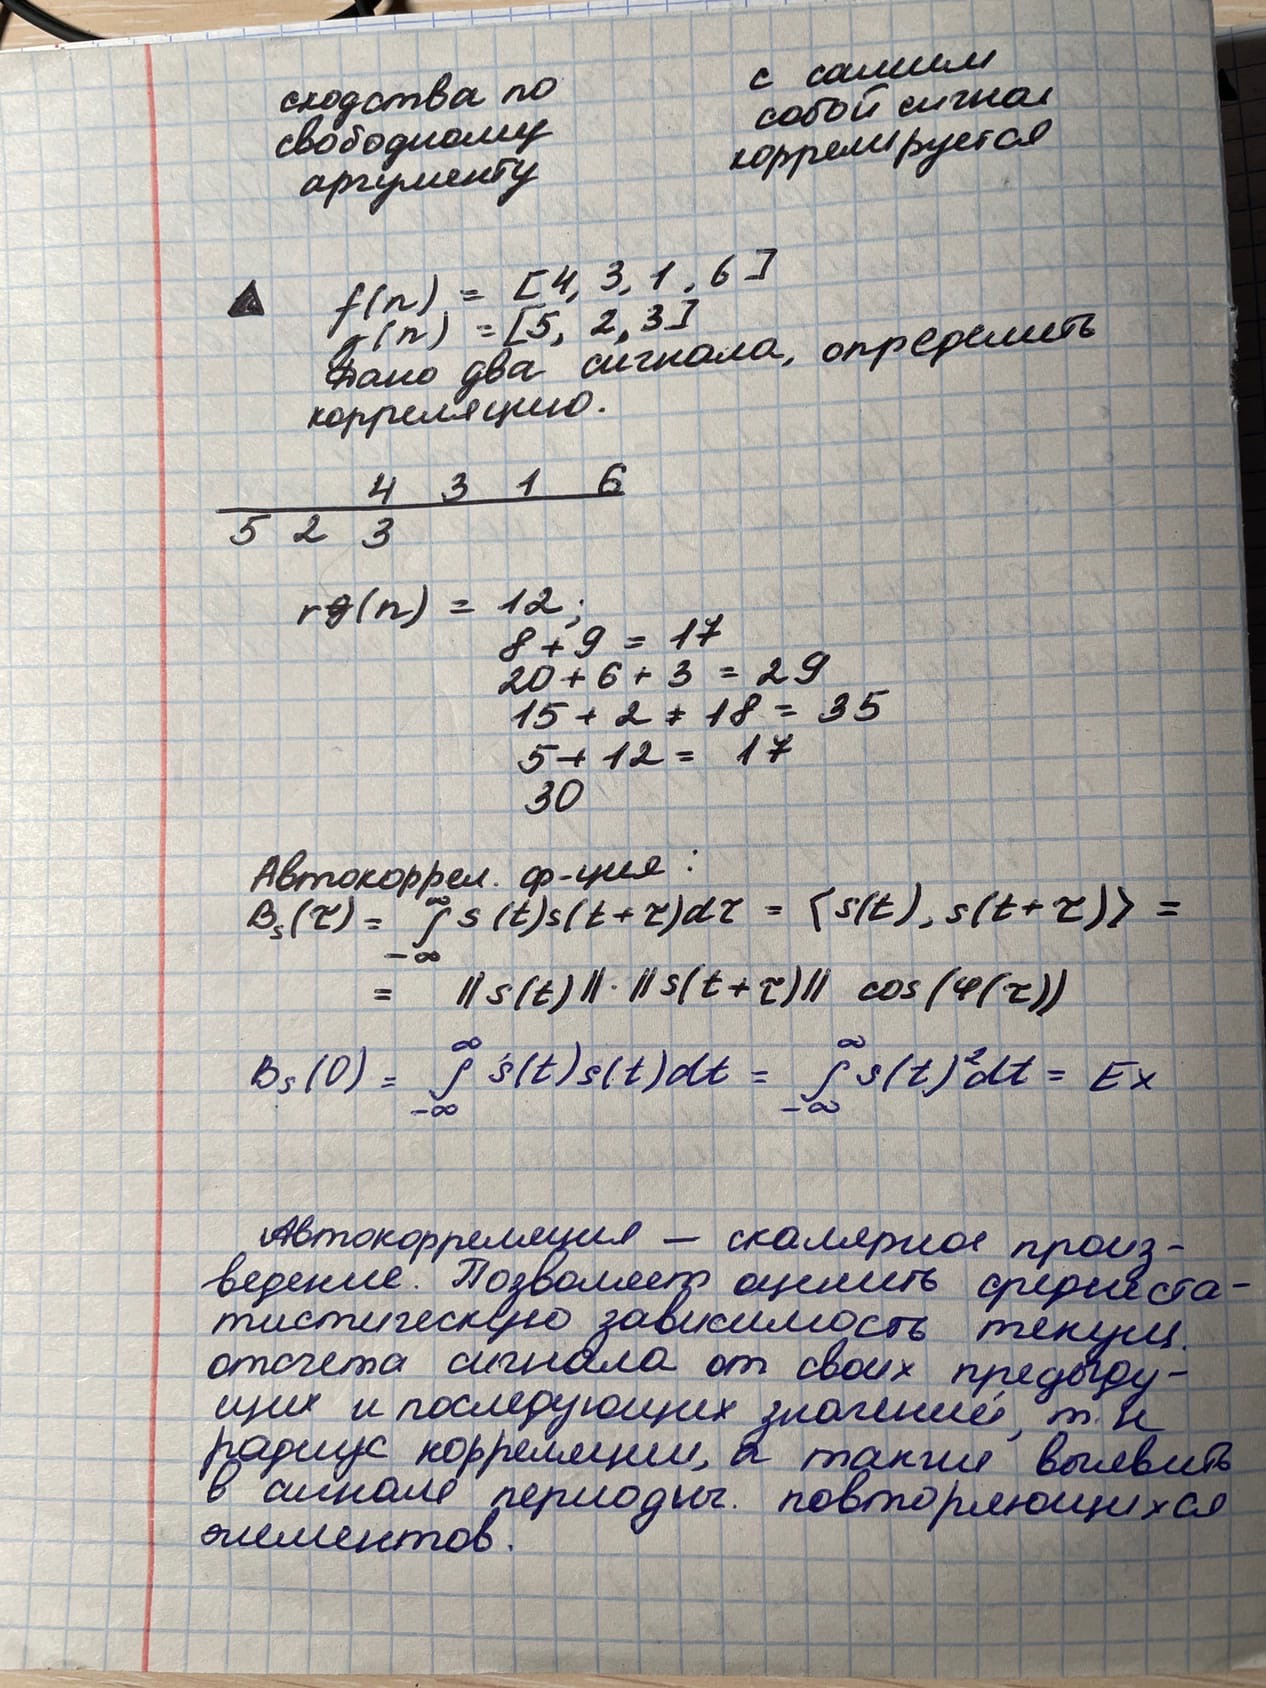 сходства по
свободному
аргументу
с самим
собой сигнал
коррелируется
f(n) = [4, 3, 1, 6]
g(n) = [5, 2, 3]
Дано два сигнала, определить
корреляцию.
4 3 1 6
5 2 3
rg(n) = 12;
8 + 9 = 17
20 + 6 + 3 = 29
15 + 2 + 18 = 35
5 + 12 = 17
30
Автокоррел. ф-ция:
Bs(τ) = ∫_{-∞}^{∞} s(t)s(t+τ)dτ = ⟨s(t), s(t+τ)⟩ =
= ||s(t)||·||s(t+τ)|| cos(φ(τ))
Bs(0) = ∫_{-∞}^{∞} s(t)s(t)dt = ∫_{-∞}^{∞} s(t)²dt = Ex
Автокорреляция — скалярное произ-
ведение. Позволяет оценить среднеста-
тистическую зависимость текущ.
отсчета сигнала от своих предыду-
щих и последующих значений, т.н
радиус корреляции, а также выявить
в сигнале периодич. повторяющихся
элементов.